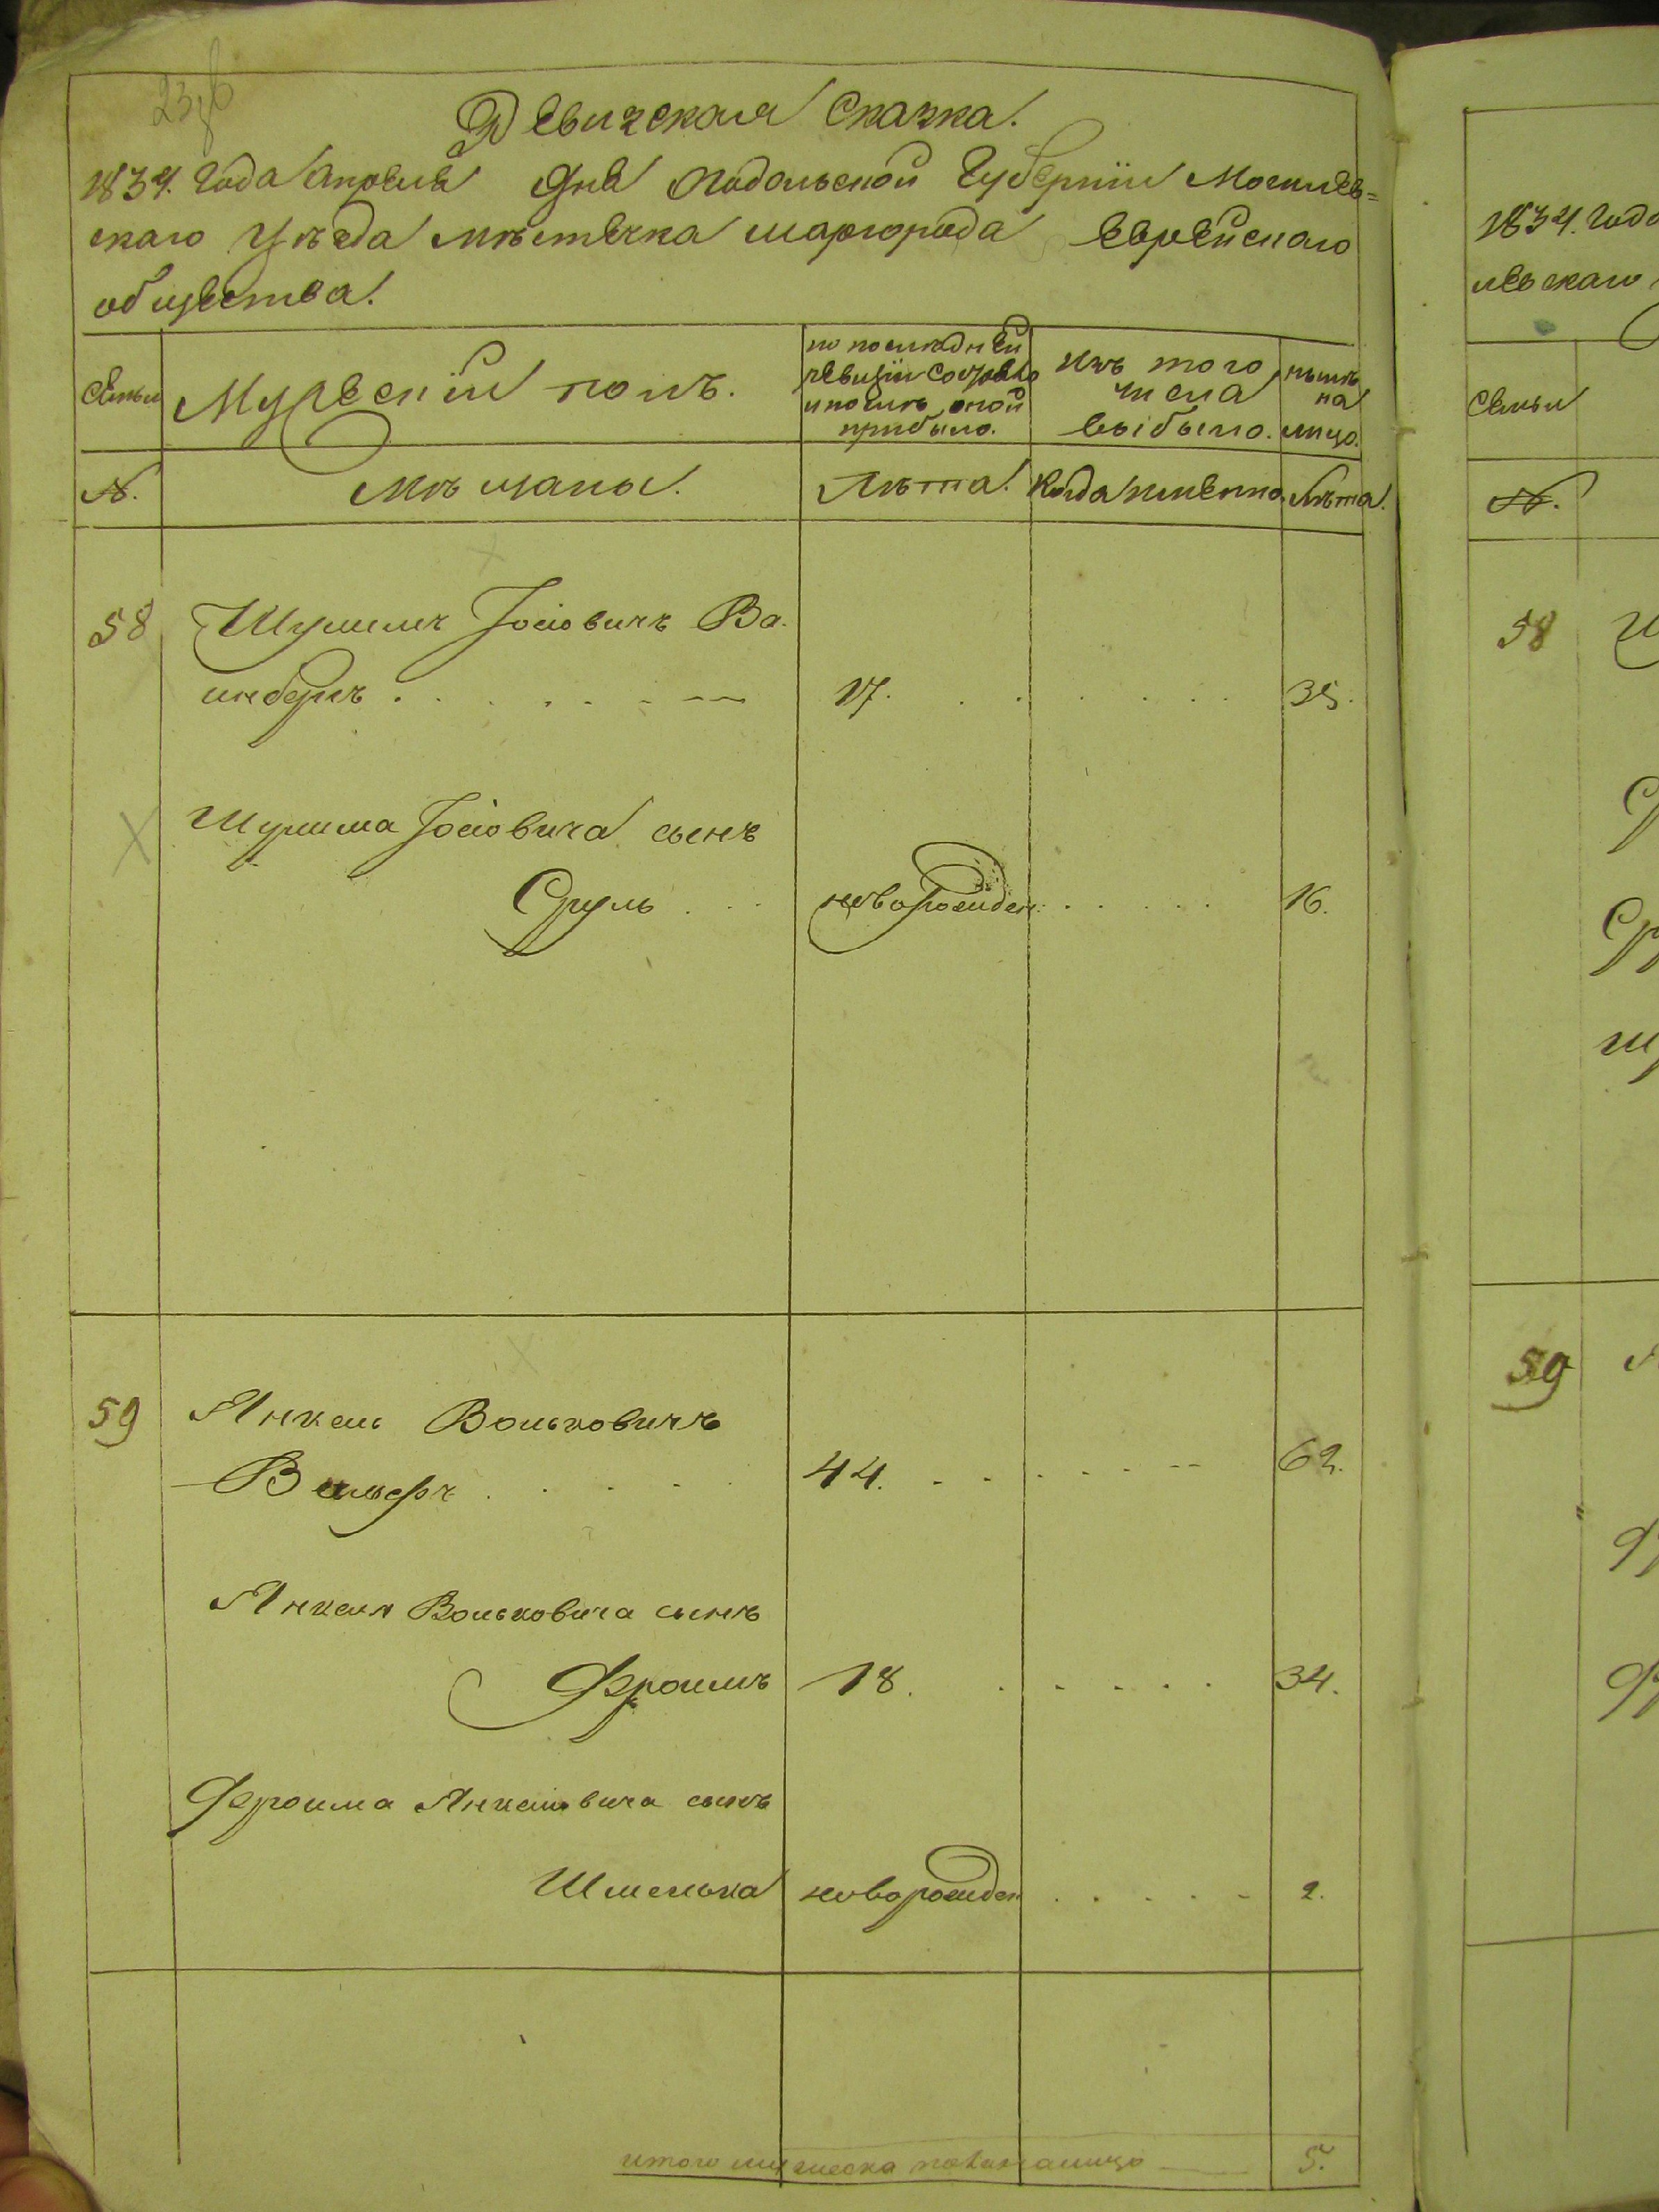 Ревизская Сказка.
1834. года Апреля дня Подольской Губернии Могилев=
скаго Уѣзда мѣстечка шаргорода Еврейскаго
общества.
Семьи Мужескій полъ. по последней ревизіи состояло и послѣ оной прибыло. Изъ того числа выбыло. нынѣ на лицо.
№. Мѣщане. Лѣта. Когда именно. Лѣта.
58 Шулимъ Іосіовичъ Ва-
инбергъ 17. 35.
Шулима Іосіовича сынъ
Сруль новорожден. 16.
59 Янкель Вольковичъ
44. 62.
Янкеля Вольковича сынъ
Фроимъ 18. 34.
Фроима Янкелевича сынъ
Шмелька новорожден 2.
итого мужеска пола налицо 5.
1834. года
левскаго
Семьи
№.
58
59